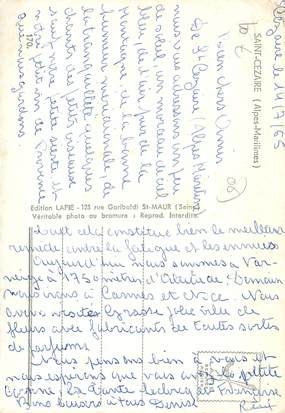 St Cézaire le 14/7/65
SAINT-CEZAIRE (Alpes-Maritimes)
Bien chers Amis
De St Cézaire (Alpes Maritimes)
nous vous adressons un peu
de soleil, un morceau de ciel
bleu, de l'air pur de la
Montagne, de la bonne
humeur méridionale, de
la tranquillité, quelques
chants des petits oiseaux
sur notre petite sieste et
un joli coin de Provence
que nous gardons
Edition LAPIE - 125 rue Garibaldi St-MAUR (Seine)
Véritable photo au bromure : Reprod. Interdite.
tout cela constitue bien le meilleur
remède contre la fatigue et les ennuis
Aujourd'hui nous sommes à
à 1750 mètres d'Altitude. Demain
nous irons à Cannes et Nice. Nous
avons visité Grasse jolie ville de
fleurs avec fabricants de toutes sortes
de parfums
Nous pensons bien à vous et
nous espérons que vous la petite
Corinne, La Tante
Bons baisers à tous Denise